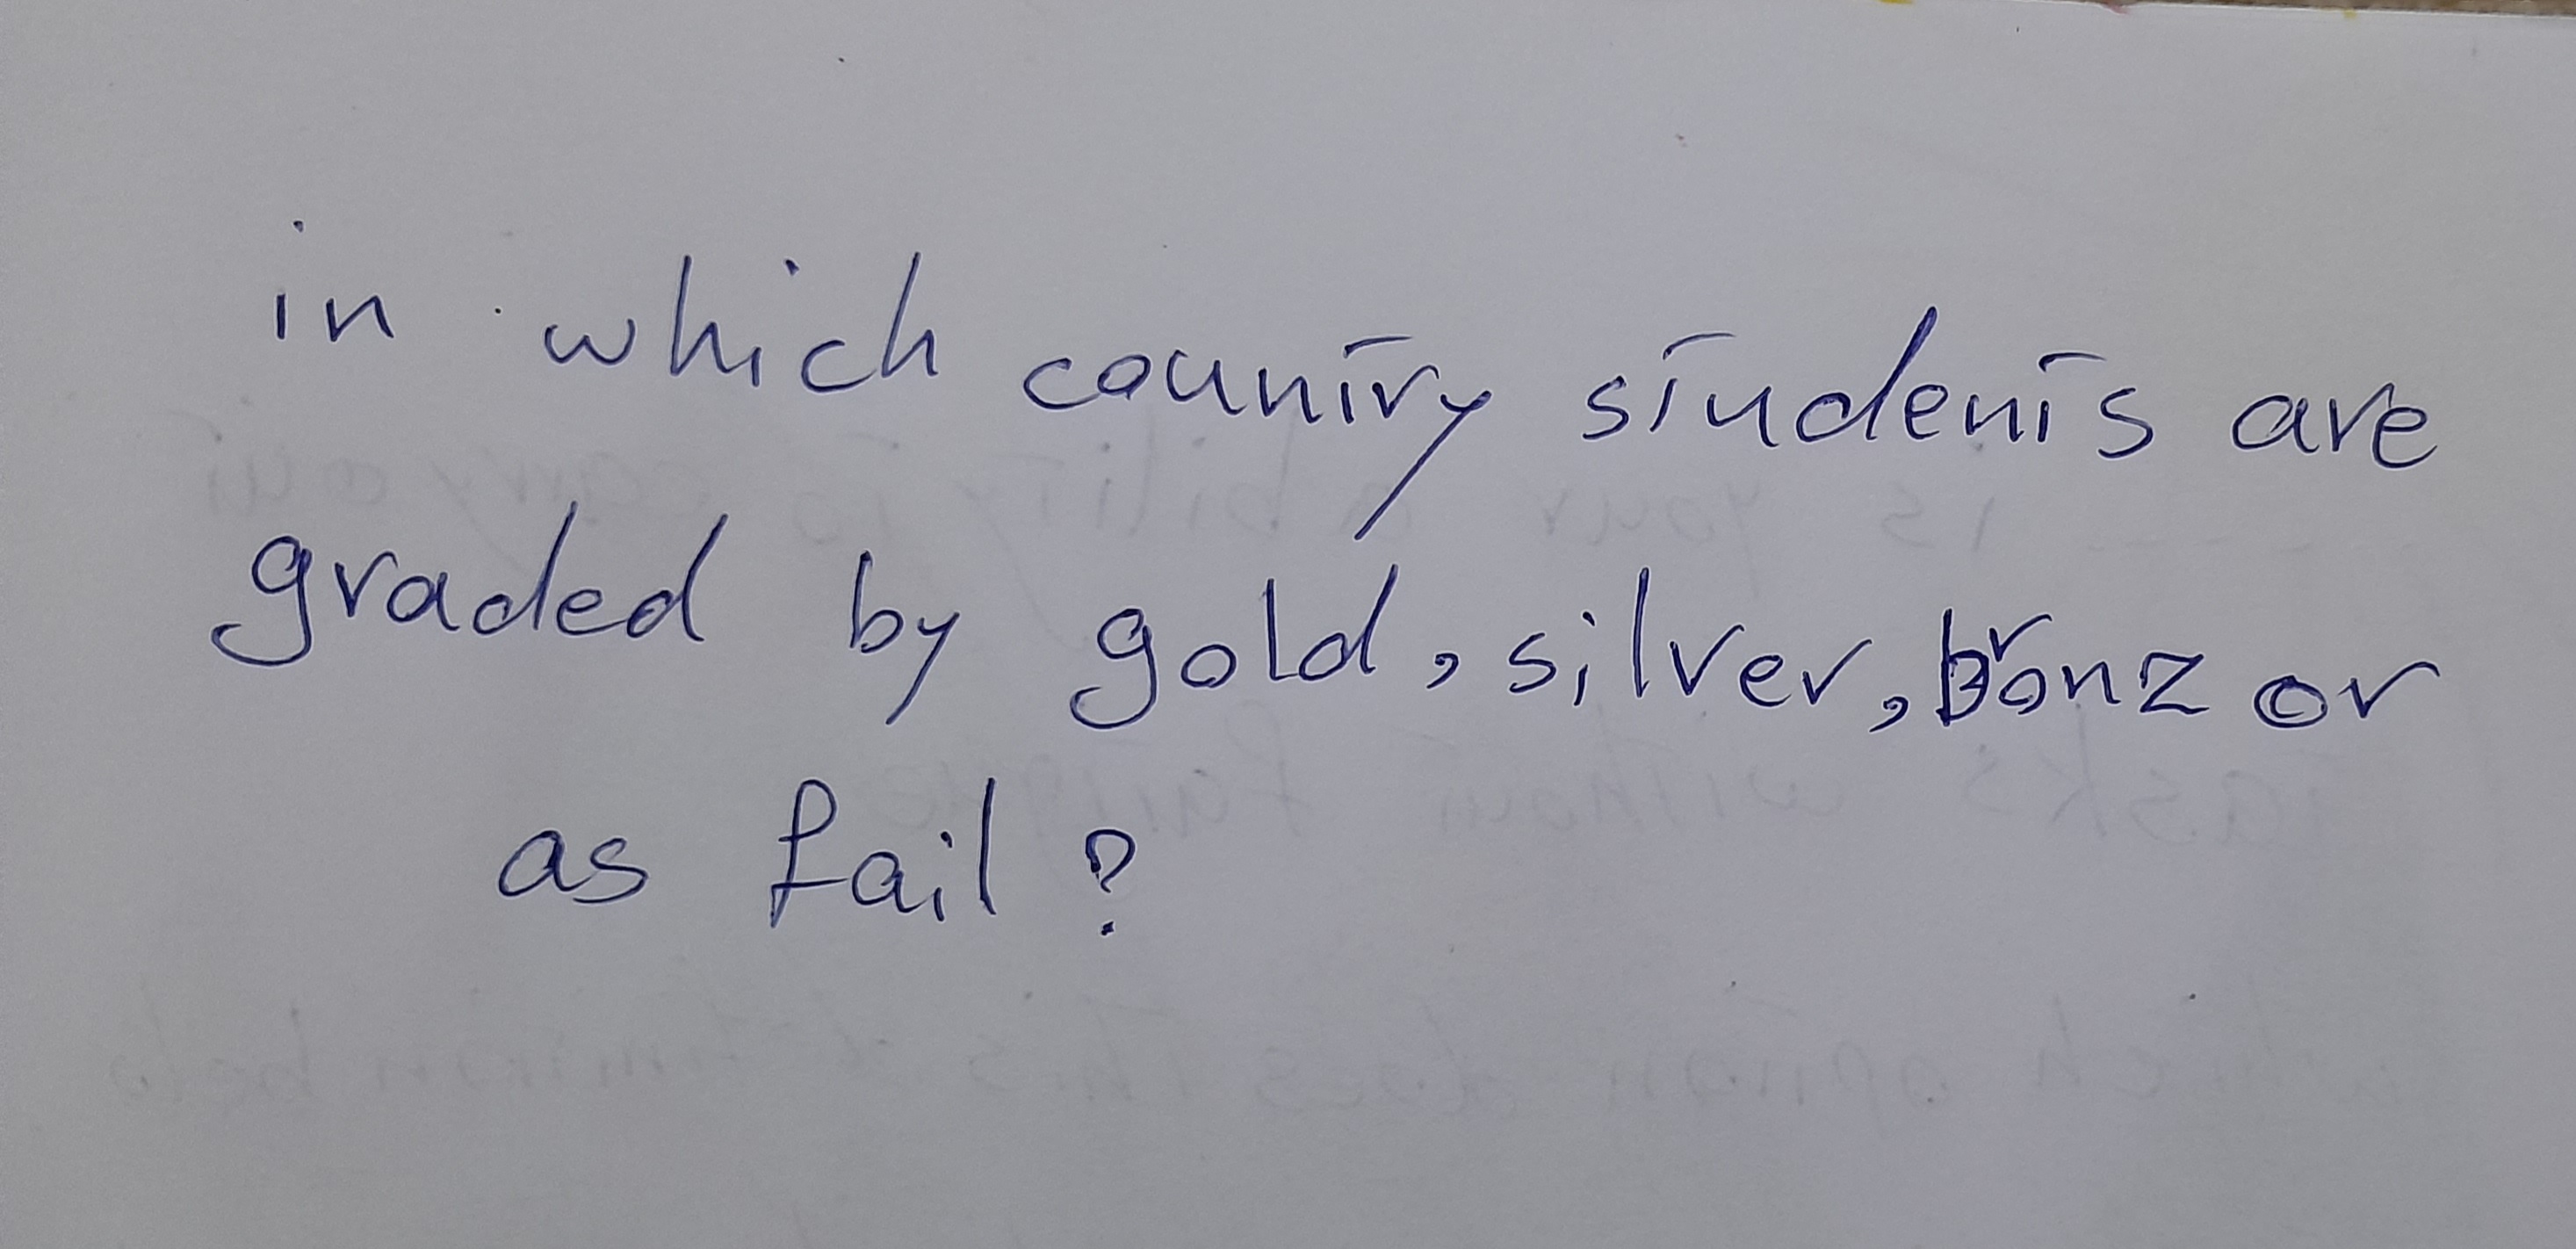 in which country students are
graded by gold, silver, bronz or
as fail ?